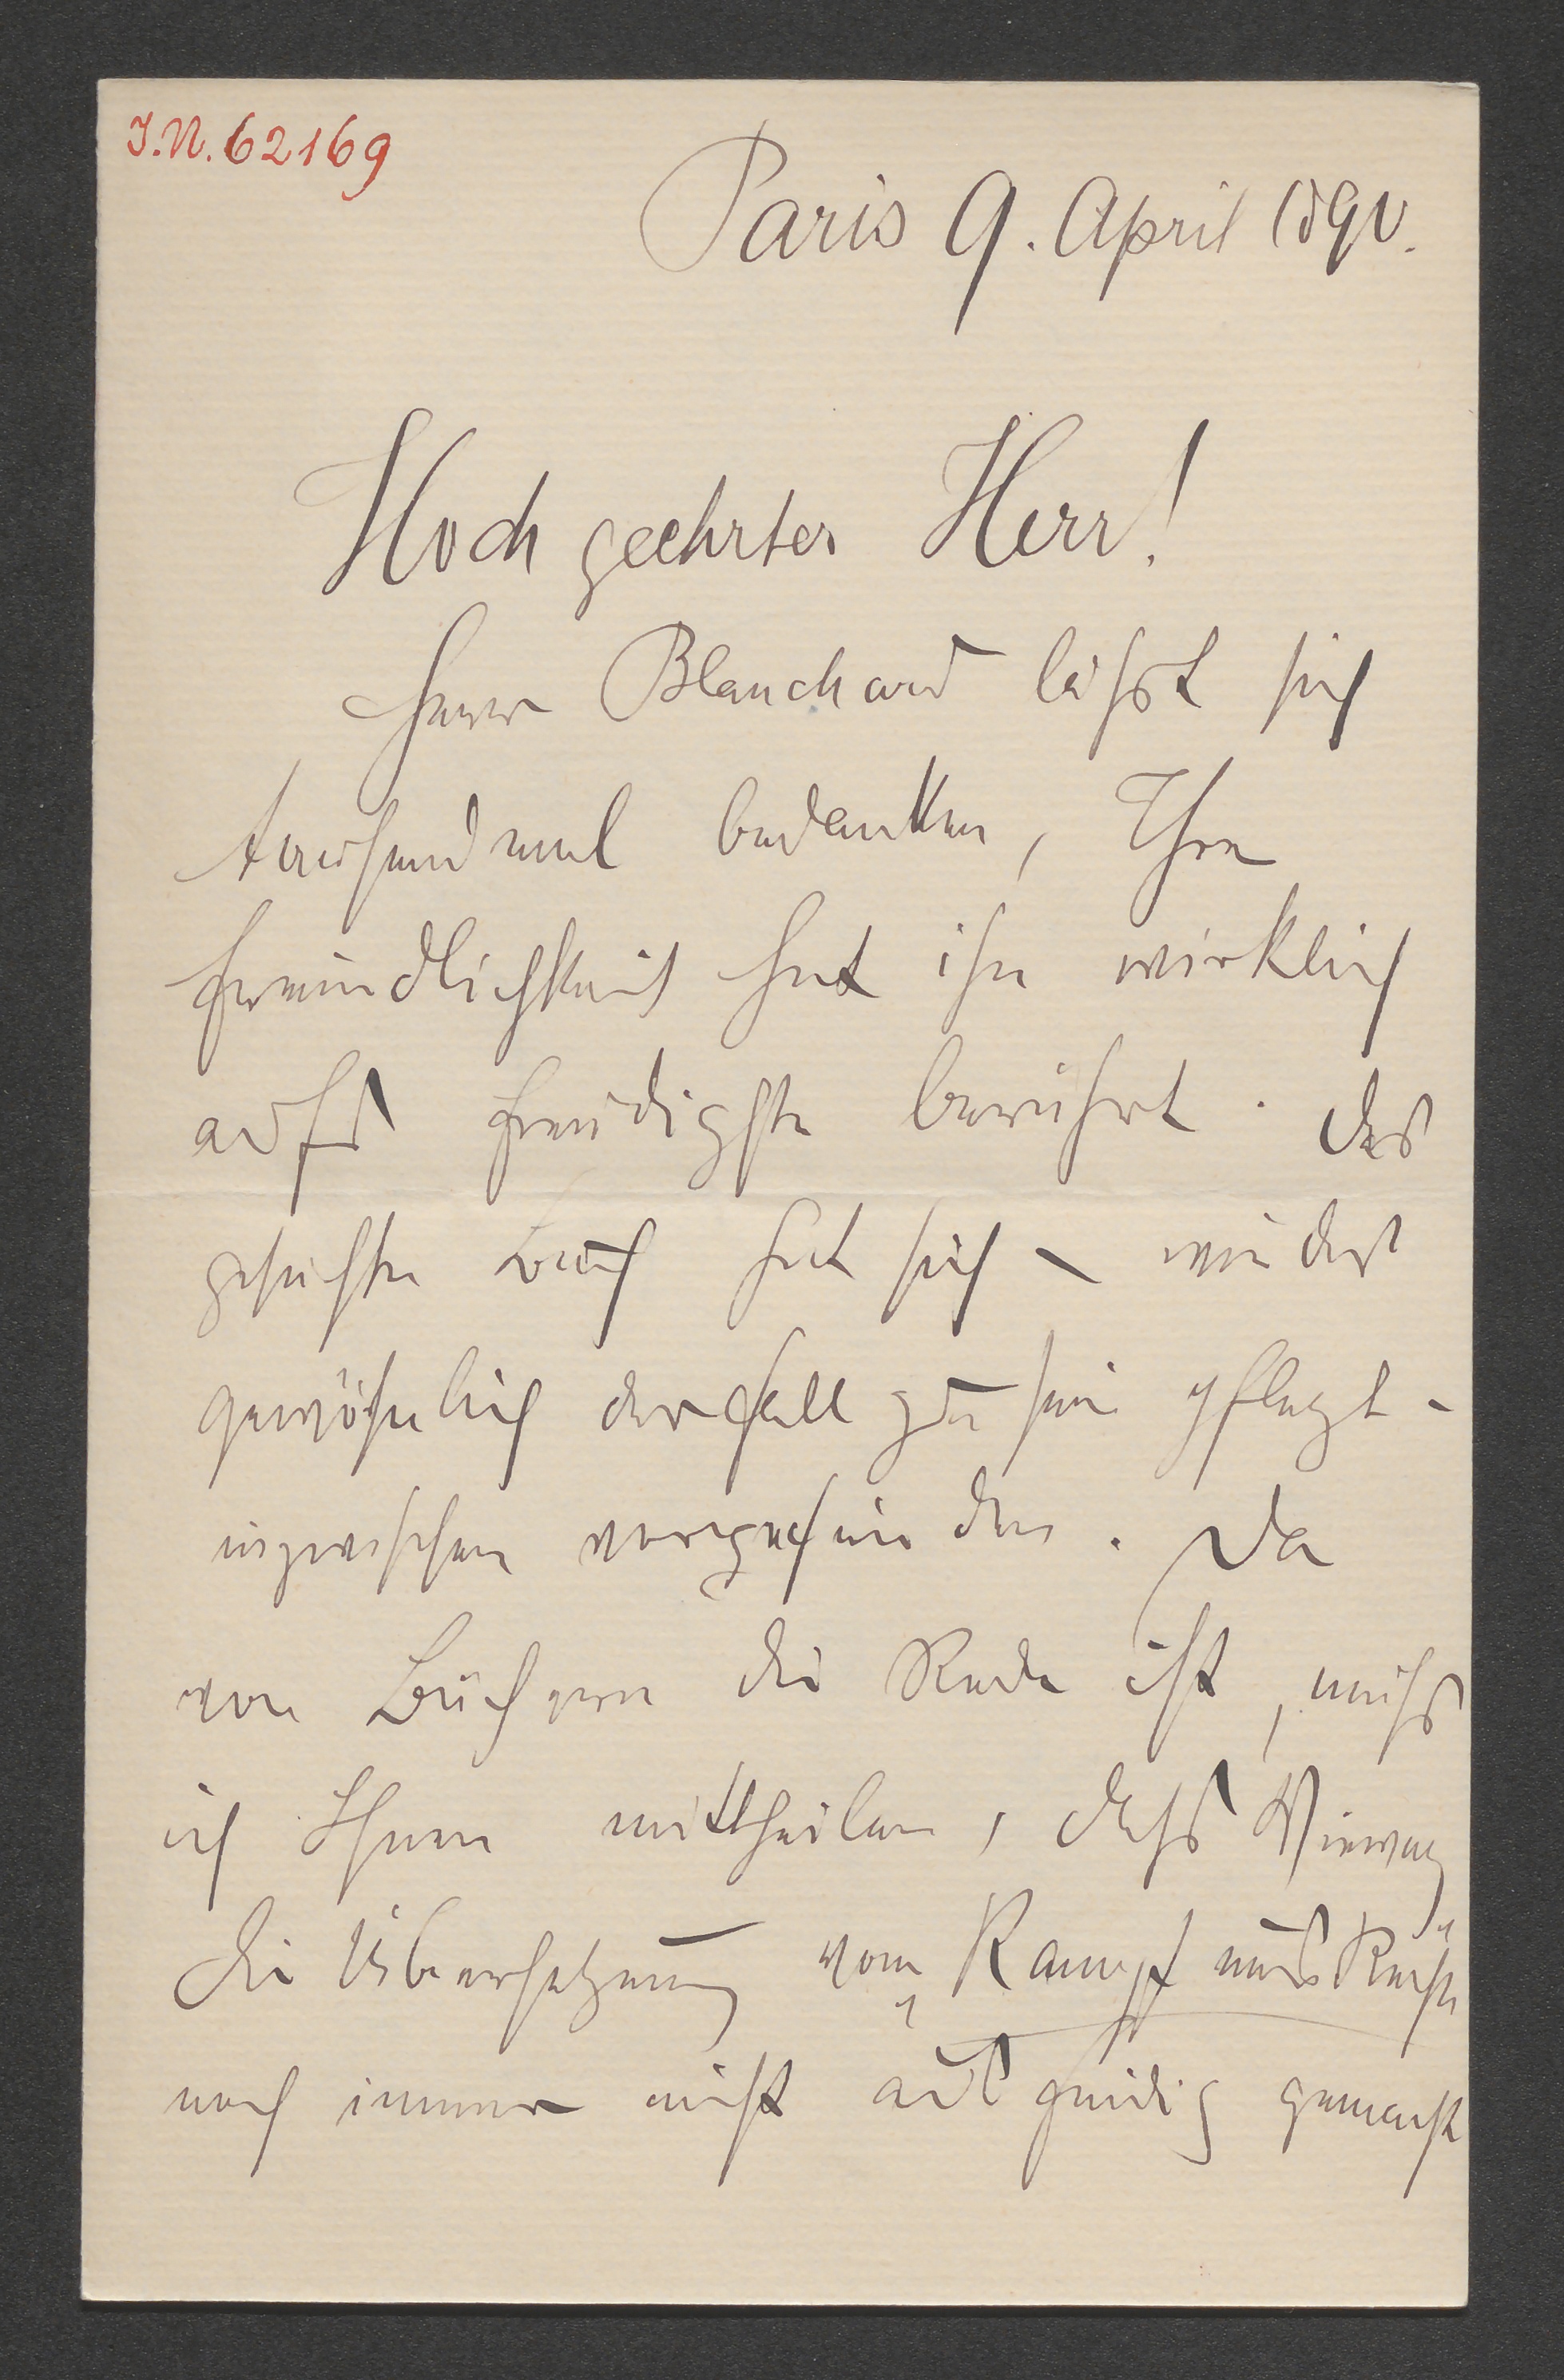 I.N. 62169
Paris 9. April 1890.
Hochgeehrter Herr!
Herr Blanchard läßt sich
tausendmal bedanken, Ihre
Freundlichkeit hat ihn wirklich
aufs freudigste berührt. Das
gesuchte Buch hat sich – wie das
gewöhnlich der Fall zu sein pflegt –
inzwischen vorgefunden. Da
von Büchern die Rede ist, muß
ich Ihnen mittheilen, daß Vieweg
die Übersetzung vom „Kampf ums Recht“
noch immer nicht ausfindig gemacht